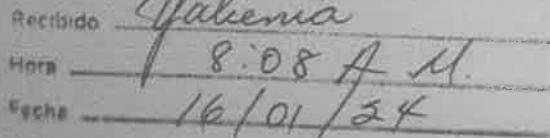 Recibido Yakenia
Hora 8:08 A M.
Fecha 16/01/24